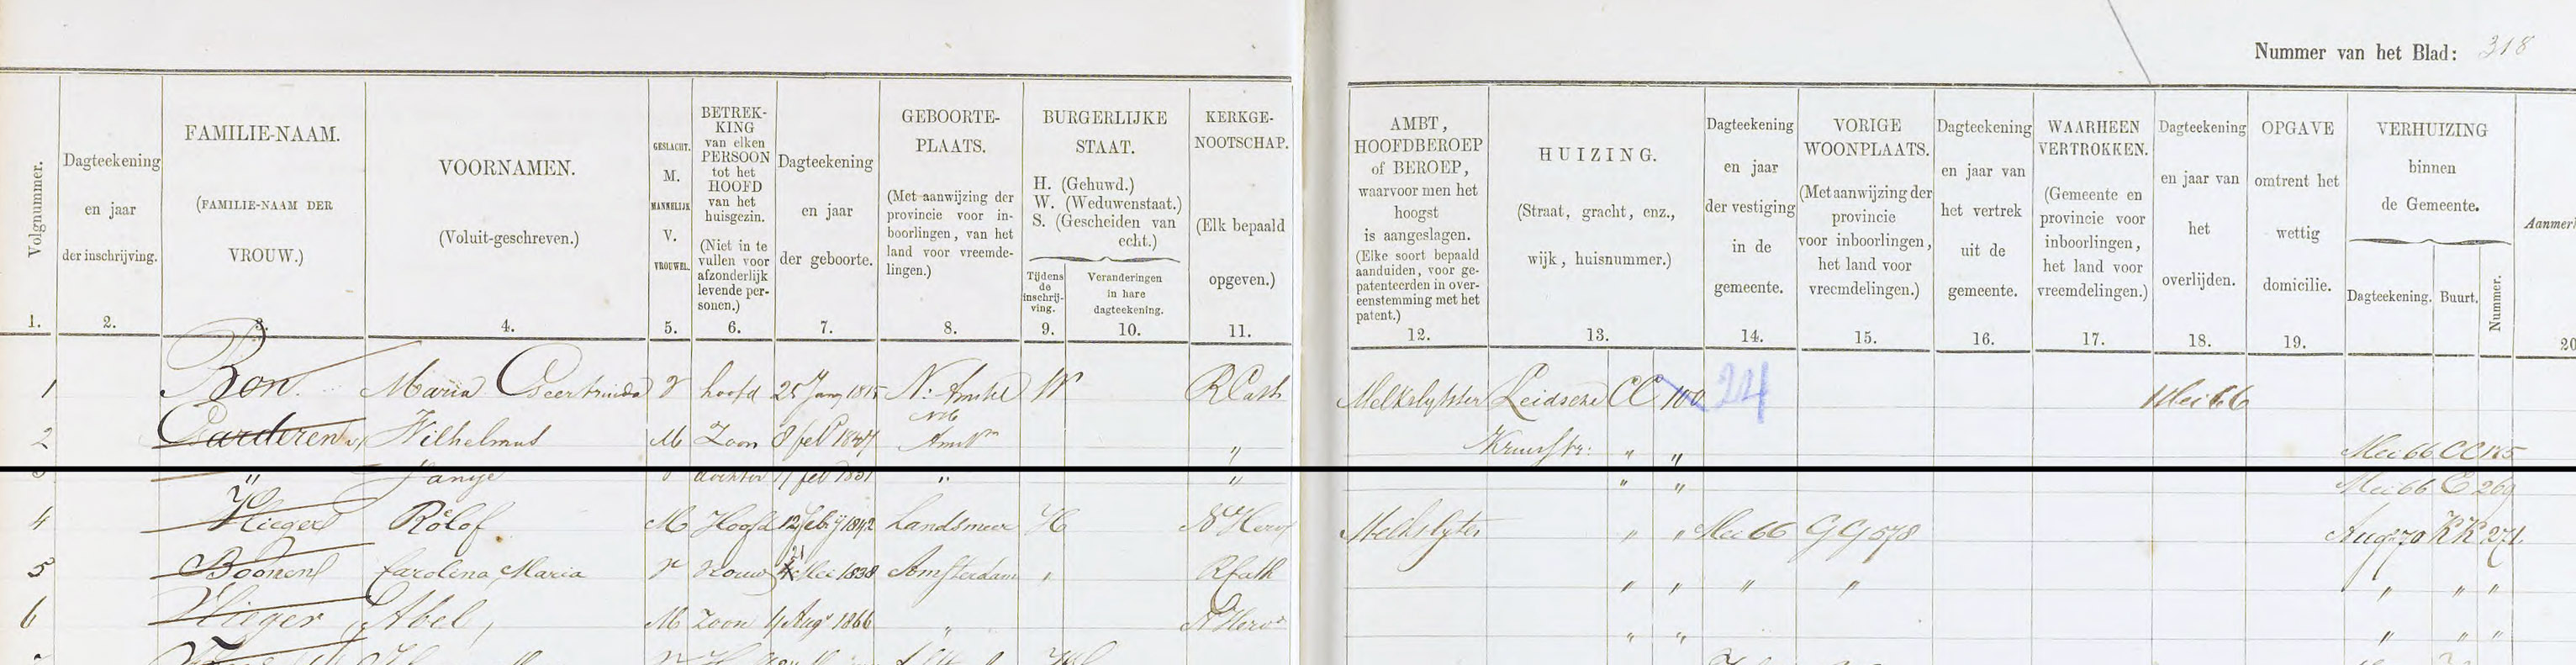 Nummer van het Blad: 318
Volgnummer. 1.
Dagteekening en jaar der inschrijving. 2.
FAMILIE-NAAM. (FAMILIE-NAAM DER VROUW.) 3.
VOORNAMEN. (Voluit-geschreven.) 4.
GESLACHT. M. MANNELIJK V. VROUWEL. 5.
BETREK-KING van elken PERSOON tot het HOOFD van het huisgezin. (Niet in te vullen voor afzonderlijk levende per-sonen.) 6.
Dagteekening en jaar der geboorte. 7.
GEBOORTE-PLAATS. (Met aanwijzing der provincie voor in-boorlingen, van het land voor vreemde-lingen.) 8.
BURGERLIJKE STAAT. H. (Gehuwd.) W. (Weduwenstaat.) S. (Gescheiden van echt.)
Tijdens de inschrij-ving. 9.
Veranderingen in hare dagteekening. 10.
KERKGE-NOOTSCHAP. (Elk bepaald opgeven.) 11.
AMBT, HOOFDBEROEP of BEROEP, waarvoor men het hoogst is aangeslagen. (Elke soort bepaald aanduiden, voor ge-patenteerden in over-eenstemming met het patent.) 12.
HUIZING. (Straat, gracht, enz., wijk, huisnummer.) 13.
Dagteekening en jaar der vestiging in de gemeente. 14.
VORIGE WOONPLAATS. (Met aanwijzing der provincie voor inboorlingen, het land voor vreemdelingen.) 15.
Dagteekening en jaar van het vertrek uit de gemeente. 16.
WAARHEEN VERTROKKEN. (Gemeente en provincie voor inboorlingen, het land voor vreemdelingen.) 17.
Dagteekening en jaar van het overlijden. 18.
OPGAVE omtrent het wettig domicilie. 19.
VERHUIZING binnen de Gemeente.
Dagteekening. Buurt. Nummer.
Aanmer
20
1 Bon. Maria Geertruida V hoofd 25 Jany 1815 N: Amstel W R Cath Melkslytster Leidsche CC 100 24 1 Mei 66
2 Garderen v, Wilhelmus M Zoon 8 feb 1847 Amstm " Kruisstr: " " Mei 66 CC 125
3 " Jansje V dochter 17 feb 1851 " " " " Mei 66 C 269
4 Vlieger Roelof M Hoofd 12 feby 1842 Landsmeer H N Herv Melkslyter " " Mei 66 GG 578 Aug 70 KK 271
5 Boomen Carolina Maria V vrouw 21 Mei 1838 Amsterdam " R Cath " " " " " " "
6 Vlieger Abel, M Zoon 11 Augs 1866 " N Herv " " " " "